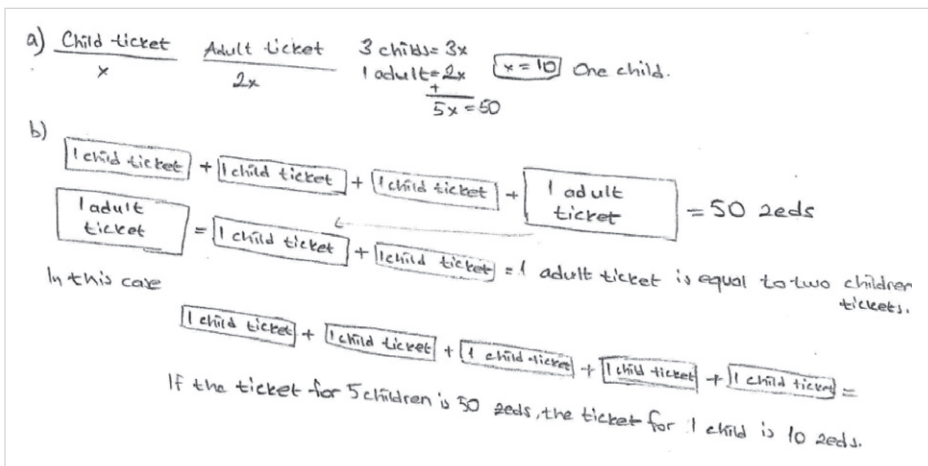 a) Child ticket Adult ticket 3 childs= 3x
x 2x 1 adult= 2x x = 10 One child.
+
5x = 50
b)
1 child ticket + 1 child ticket + 1 child ticket + 1 adult ticket = 50 zeds
1 adult ticket = 1 child ticket + 1 child ticket = 1 adult ticket is equal to two children tickets.
In this case
1 child ticket + 1 child ticket + 1 child ticket + 1 child ticket + 1 child ticket =
If the ticket for 5 children is 50 zeds, the ticket for 1 child is 10 zeds.